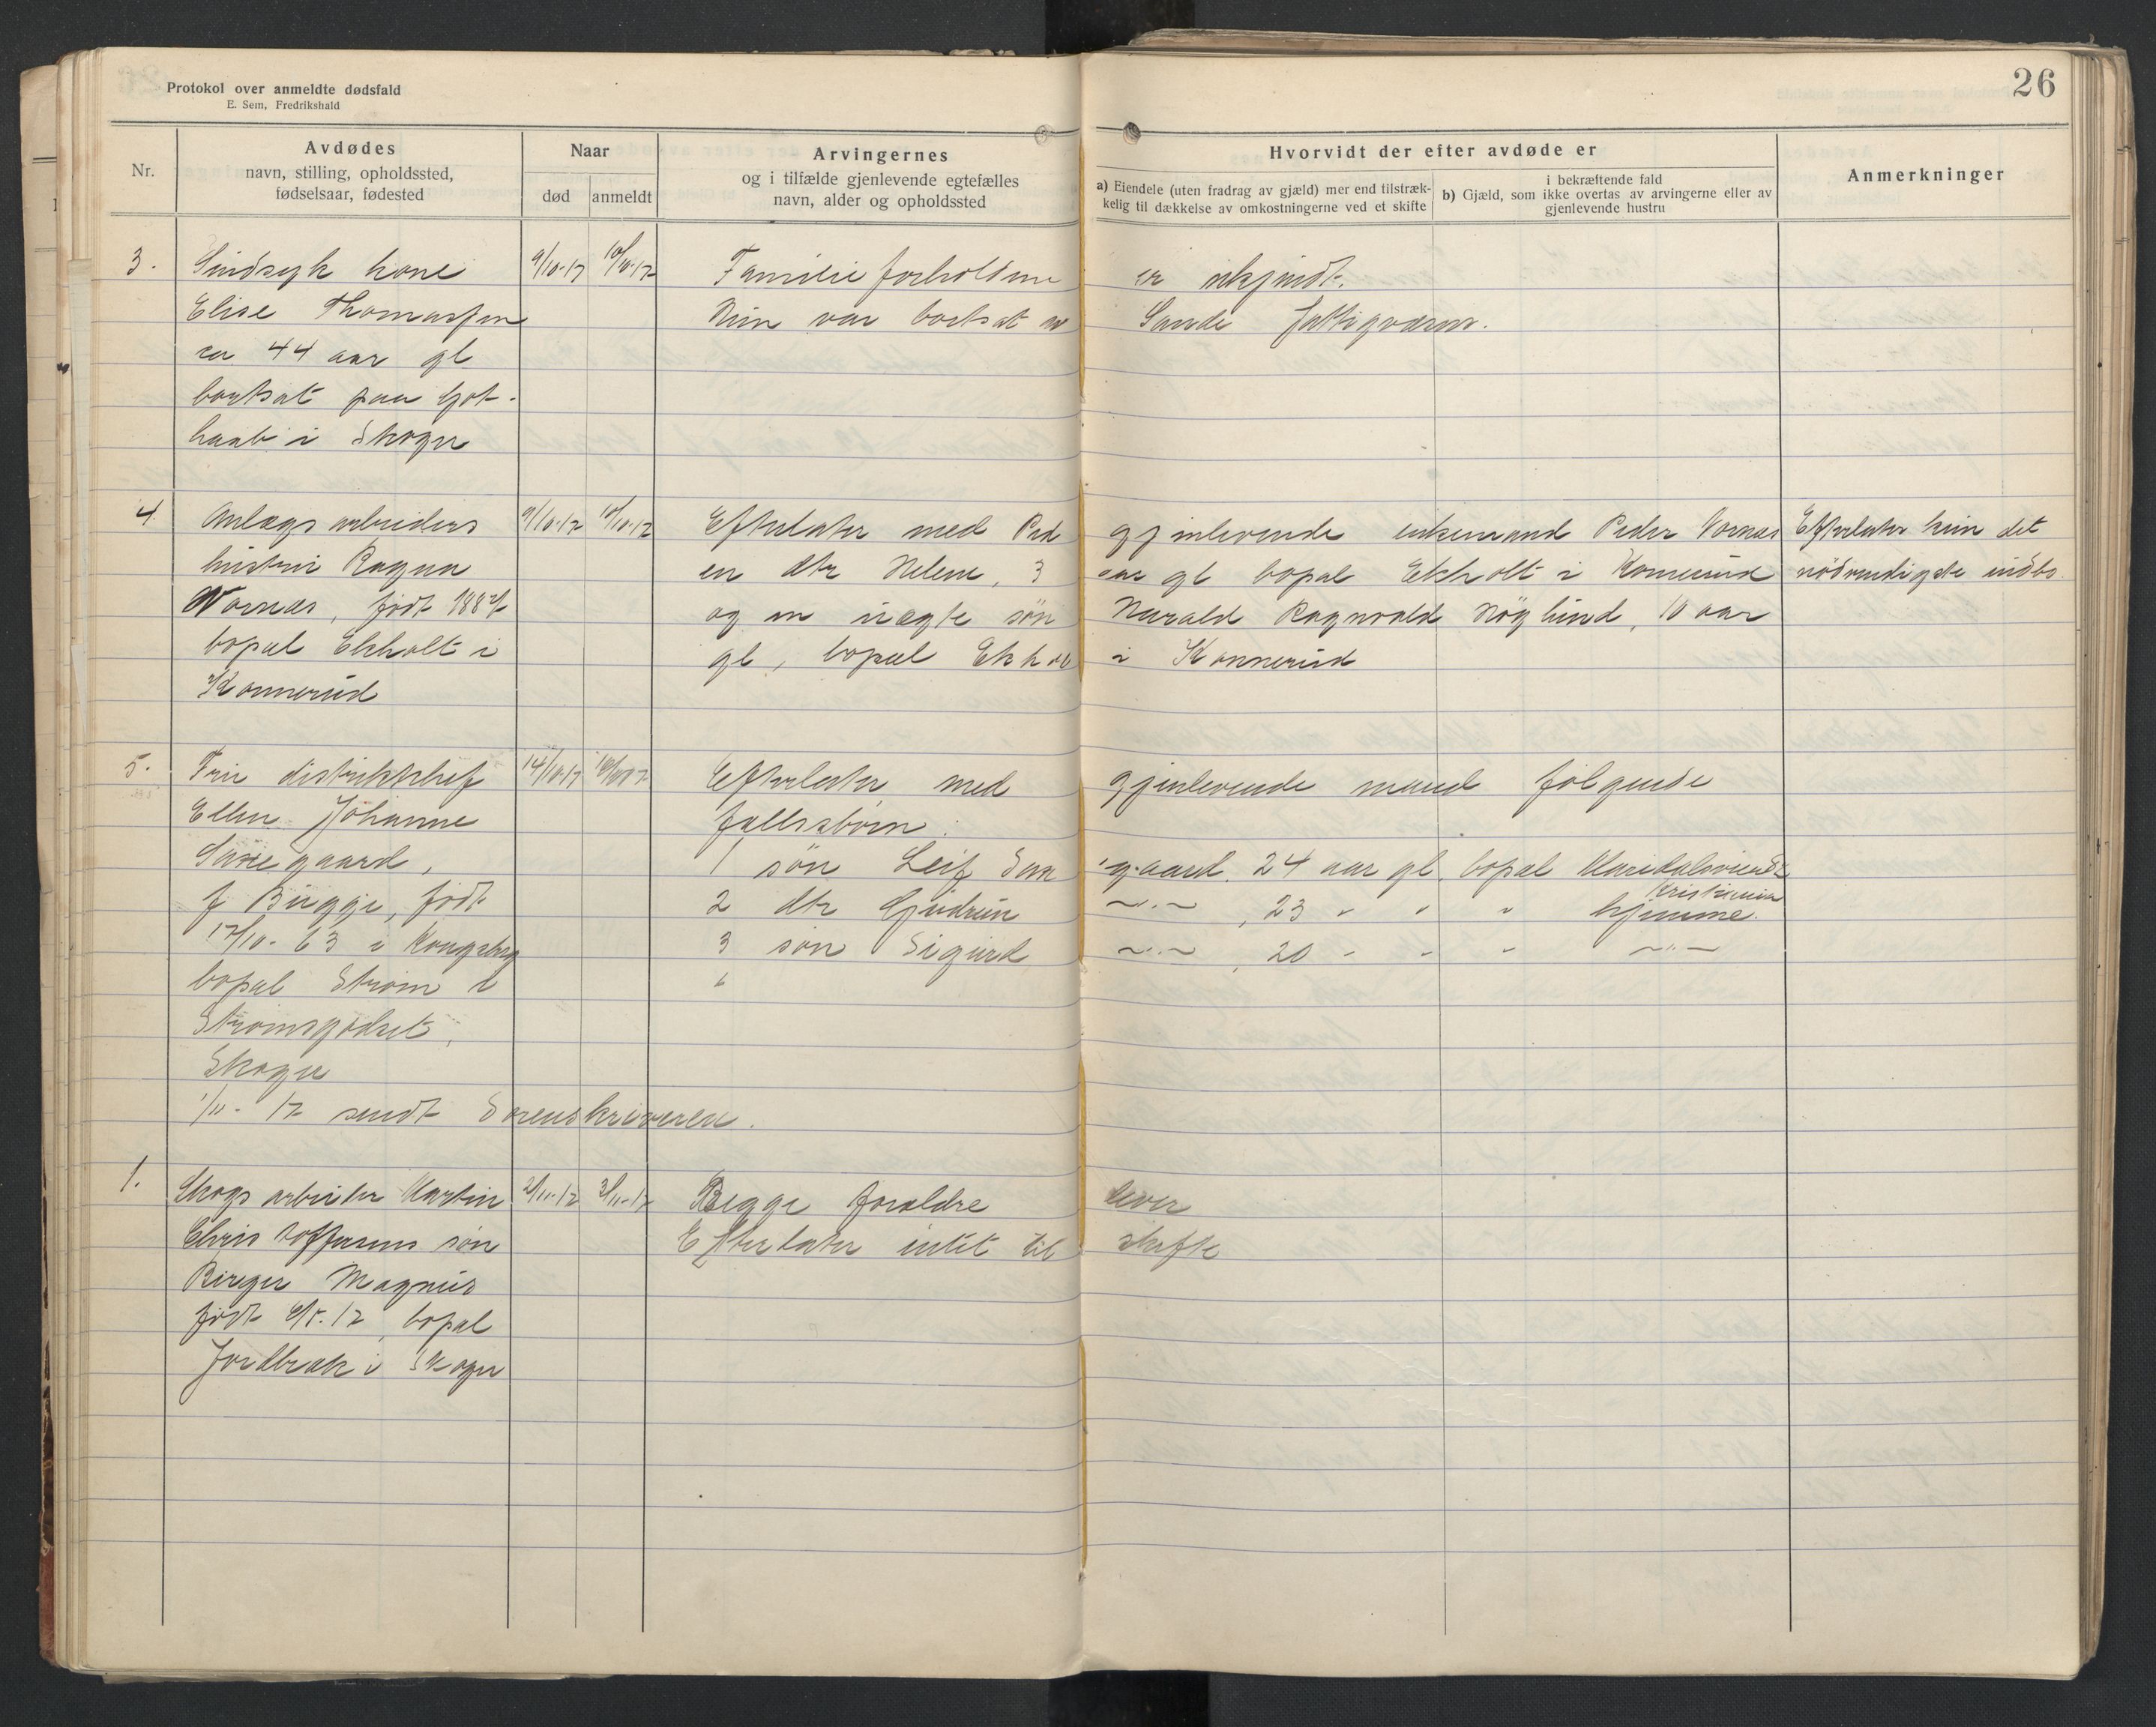 Protokol over anmeldte dødsfald
E. Sem, Fredrikshald
26
Nr.
Avdødes
navn, stilling, opholdssted,
fødselsaar, fødested
Naar
død anmeldt
Arvingernes
og i tilfælde gjenlevende egtefælles
navn, alder og opholdssted
Hvorvidt der efter avdøde er
a) Eiendele (uten fradrag av gjæld) mer end tilstræk-
kelig til dækkelse av omkostningerne ved et skifte
i bekræftende fald
b) Gjæld, som ikke overtas av arvingerne eller av
gjenlevende hustru
Anmerkninger
3. Sindsyk kone 9/10-17 10/10-17 Familie forholdene er ukjendt.
Elise Thomassen Hun var bortsat av Sande fattigvæsen.
ca 44 aar gl
bortsat paa Got-
haab i Skoger
4. Anlægsarbeiders 9/10-17 10/10-17 Efterlater med gjenlevende enkemand Peder Vornæs Efterlater kun det
hustru Ragna en dtr Helene, 3 aar gl bopæl Ekholt i Konnerud nödvendigste indbo.
Vornæs, født og en uægte søn Harald Ragnvald Höglund, 10 aar
bopæl Ekholt i gl, bopæl Ekholt i Konnerud
Konnerud
5. Frue distriktchef 14/10-17 Efterlater med gjenlevende mand følgende
Ellen Johanne fællesbørn:
Saxegaard, 1 søn Leif Saxegaard. 24 aar gl. bopæl Maridalsveien
Kristiania
f Bugge, født 2 dtr Gudrun —"— , 23 " " " hjemme.
17/10-63 i Kongsberg 3 søn Sigurd —"— , 20 " " " —"—
bopæl Strøm i
Strømsgodset,
Skoger
1/11-17 sendt Sorenskriveren.
1. Skogsarbeider Martin 2/11-17 3/11-17 Begge forældre lever
Christoffersens søn Efterlater intet til skifte
Birger Magnus
født 6/5-17, bopæl
Jordbræk i Skoger